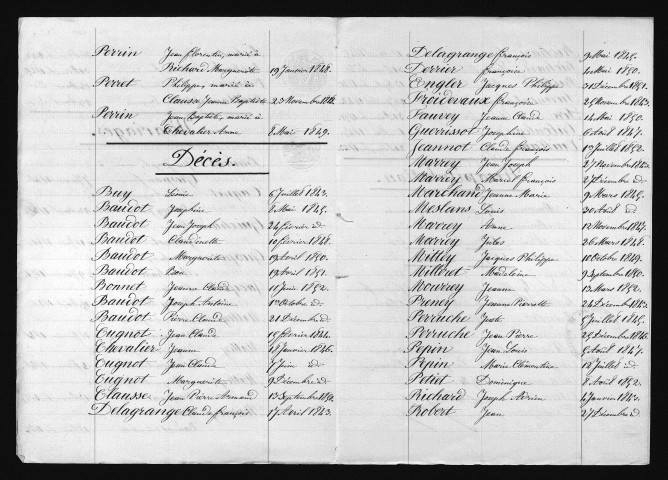 Perrin Jean florentin, marié à
Richard Marguerite 19 Janvier 1848.
Perret Philippe, marié à
Clausse Jeanne Baptiste 23 Novembre
Perrin Jean Baptiste, marié à
Chevalier Anne 8 Mai 1849.
Décès.
Buy 6 Juillet 1843.
Baudot Josephine 8 Mai 1845.
Baudot Jean Joseph 24 février do
Baudot Claudinette 10 février 1848.
Baudot Marguerite 19 Avril 1850.
Baudot 19 Avril 1851.
Bonnet Jeanne Claude 11 Juin 1852.
Baudot Joseph Antoine 1er Octobre do
Baudot Pierre Claude 21 Décembre do
Cugnot Jean Claude 15 février 1844.
Chevalier Jeanne 18 Janvier 1846.
Cugnot Jean Claude 7 Juin do
Cugnot Marguerite 9 Décembre do
Clausse Jean Pierre Armand 13 Septembre 1852.
Delagrange Claude françois 17 Avril 1843.
Delagrange françois 9 Mai 1845.
Derrier françoise 4 Mai 1850.
Engler Jacques Philippe 31 Décembre 1851.
Froidevaux françoise 25 Novembre 1843.
Fauvey Jeanne Claude 14 Mai 1850.
Guerrissot Josephine 6 Août 1847.
Jeannot Claude françois 1er Juillet 1852.
Marrey Jean Joseph 27 Novembre 1843.
Marrey Marcel françois 27 Décembre do
Marchand Jeanne Marie 9 Mars 1845.
Meslans Louis 30 Avril do
Marrey Anne 12 Novembre 1847.
Marrey Jules 26 Mars 1848.
Milley Jacques Philippe 10 Octobre 1849.
Millerot Madeleine 9 Septembre 1850.
Mourrey Jeanne 13 Mars 1852.
Preney Jeanne Pierrette 24 Décembre 1843.
Perruche Juste 5 Juillet 1845.
Perruche Jean Pierre 25 Décembre 1846.
Pepin Jean Louis 5 Août 1847.
Pepin Marie Clémentine 12 Juillet do
Petiot Dominique 8 Août 1852.
Richard Joseph Adrien 4 Janvier 1843.
Robert Jean 27 Décembre do